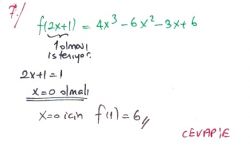 7./
f(2x+1) = 4x³-6x²-3x+6
1 olmalı
isteniyor.
2x+1=1
x=0 olmalı
x=0 için f(1)=6//
CEVAP:E